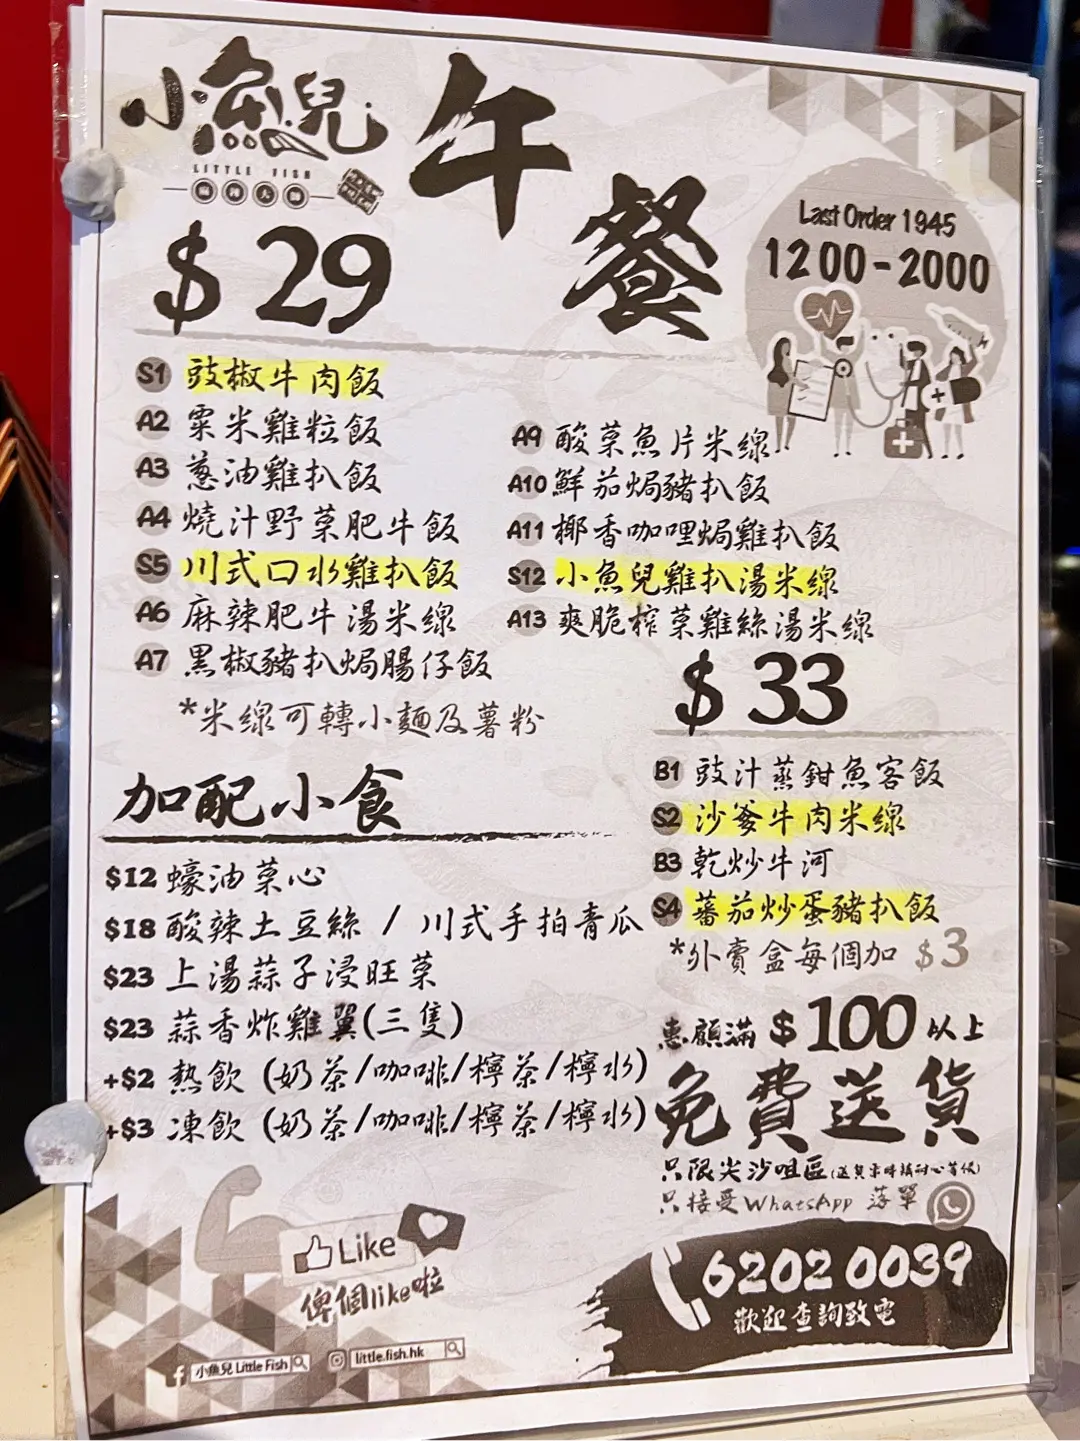 小魚兒
LITTLE FISH
午餐
Last Order 1945
1200-2000
$29
S1 豉椒牛肉飯
A2 粟米雞粒飯
A3 葱油雞扒飯
A4 燒汁野菜肥牛飯
S5 川式口水雞扒飯
A6 麻辣肥牛湯米線
A7 黑椒豬扒焗腸仔飯
*米線可轉小麵及薯粉
A9 酸菜魚片米線
A10 鮮茄焗豬扒飯
A11 椰香咖哩焗雞扒飯
S12 小魚兒雞扒湯米線
A13 爽脆榨菜雞絲湯米線
$33
B1 豉汁蒸鉗魚客飯
S2 沙爹牛肉米線
B3 乾炒牛河
S4 蕃茄炒蛋豬扒飯
*外賣盒每個加 $3
加配小食
$12 蠔油菜心
$18 酸辣土豆絲 / 川式手拍青瓜
$23 上湯蒜子浸旺菜
$23 蒜香炸雞翼(三隻)
+$2 熱飲 (奶茶/咖啡/檸茶/檸水)
+$3 凍飲 (奶茶/咖啡/檸茶/檸水)
惠顧滿 $100 以上
免費送貨
只限尖沙咀區
只接受WhatsApp 落單
6202 0039
歡迎查詢致電
Like
俾個like啦
小魚兒 Little Fish
little.fish.hk